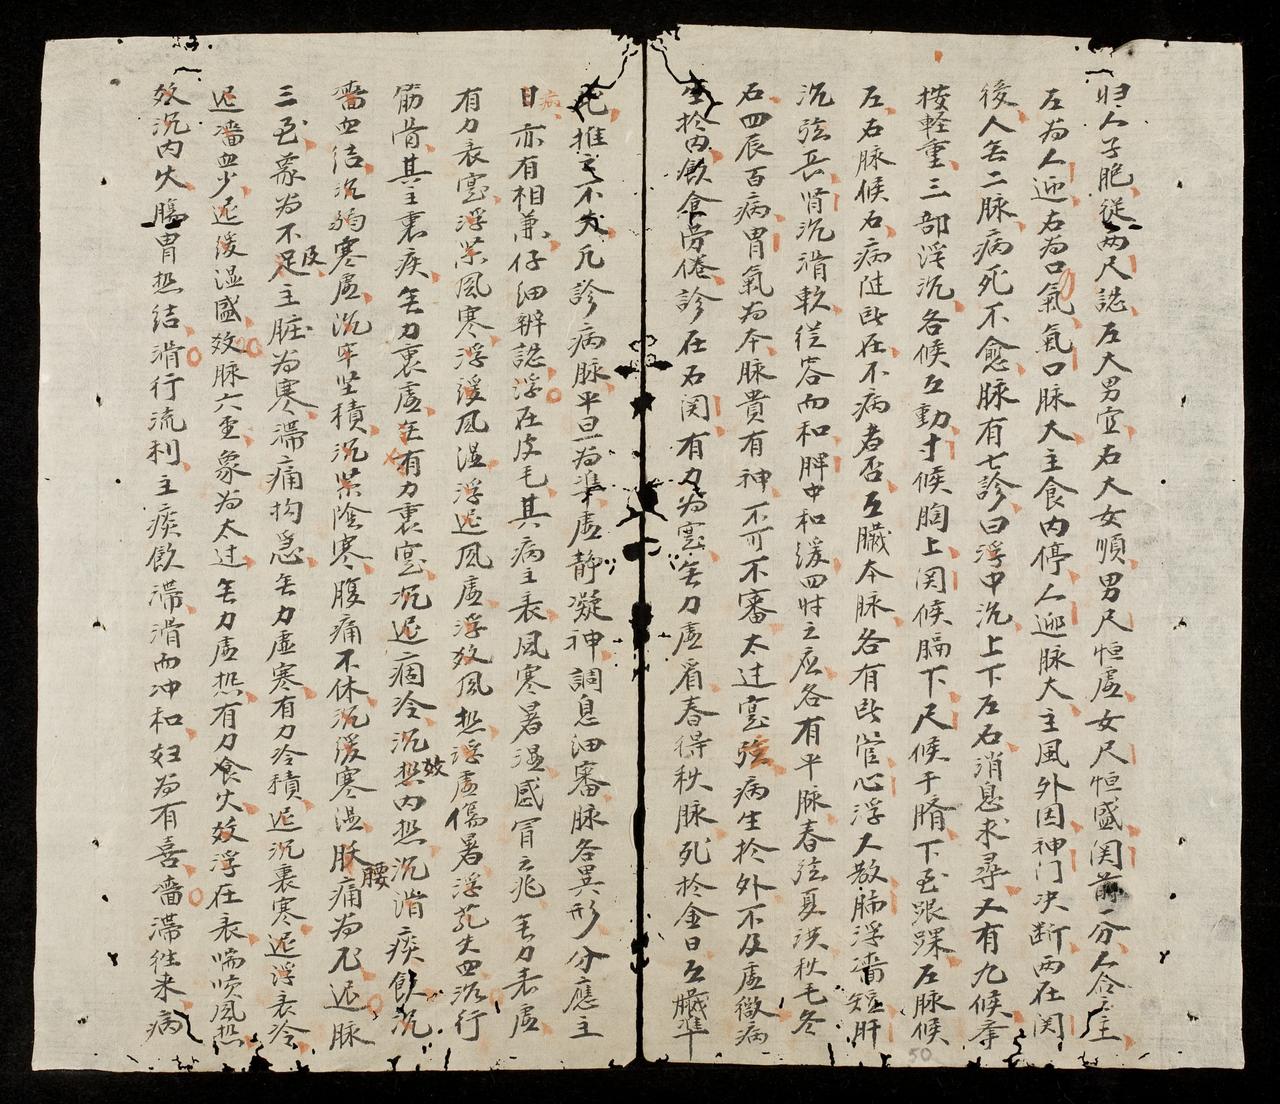 归人子胞従两尺認左大男宜右大女順男尺恒虚女尺恒盛関前一分人合主
左为人迎右为口氣氣口脉大主食内停人迎脉大主風外因神门决断两在関
後人无二脉病死不愈脉有七診曰浮中沉上下左右消息求尋又有九候挙
按軽重三部浮沉各候五動寸候胸上関候膈下尺候于臍下至跟踝左脉候
左右脉候右病随所在不病者否五臓本脉各有所管心浮大散肺浮濇短肝
沉弦長肾沉滑軟從容而和脾中和緩四时之应各有平脉春弦夏洪秋毛冬
石四辰百病胃氣为本脉貴有神不可不審太过寔強病生於外不及虚微病
生於内飲食劳倦診在右関有力为寔无力虚看春得秋脉死於金日五臓準
此推之不失凡診病脉平旦为準虚静凝神調息细審脉各異形分應主
病日亦有相兼仔细辨認浮在皮毛其病主表風寒暑湿感冒之兆无力表虚
有力表寔浮緊風寒浮緩風湿浮迟風虚浮效風热浮虚傷暑浮芤失血沉行
筋骨其主裏疾无力裏虚有力裏寔沉迟痼冷沉效热内热沉滑痰飲沉
濇血结沉弱寒虚沉牢坚積沉緊陰寒腹痛不休沉緩寒湿腰痛为𤵚迟脉
三至象为不足及主脏为寒滞痛拘急无力虚寒有力冷積迟沉裏寒迟浮表冷
迟濇血少迟緩湿盛效脉六至象为太过无力虚热有力食火效浮在表喘咳風热
效沉内火腸胃热结滑行流利主痰飲滞滑而冲和妇为有喜濇滞往来病